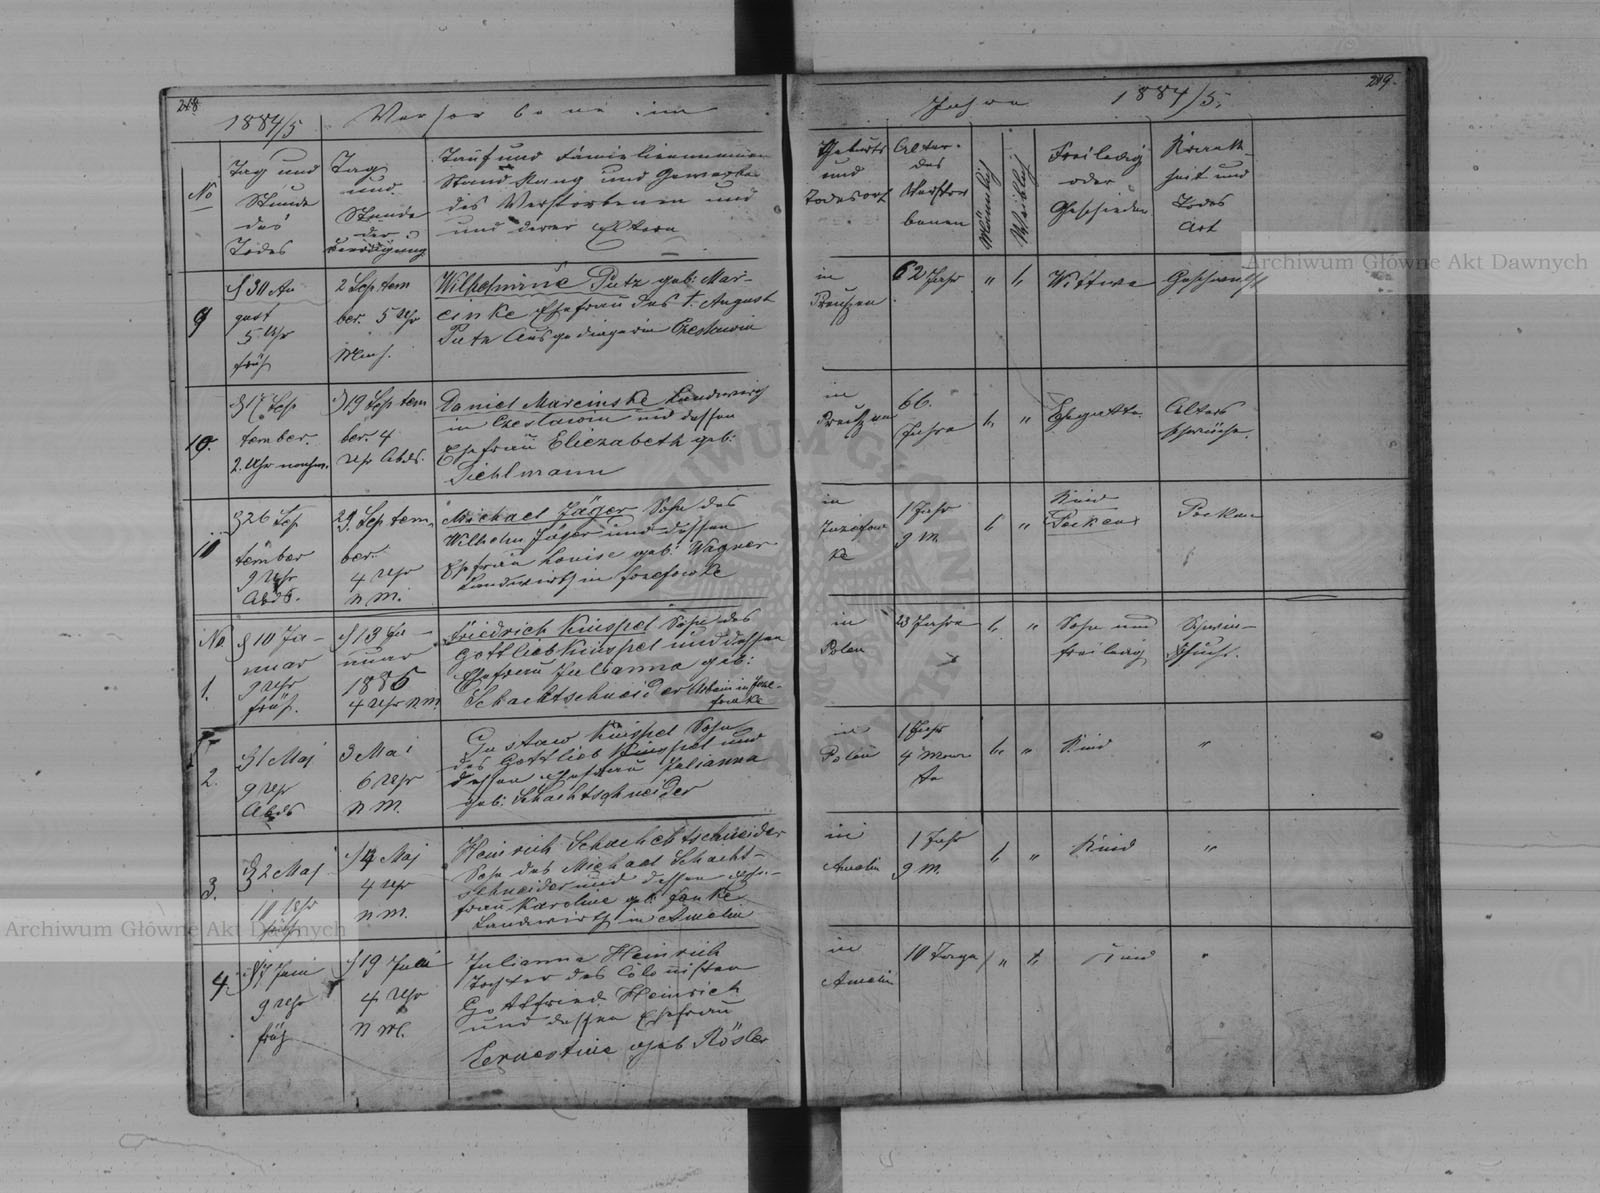 218.
1884/5 Verstorbene im
No
Tag und Stunde des Todes
Tag und Stunde der Beerdigung
Tauf und Familiennamen
Stand Rang und Gewerbe
des Verstorbenen und
und derer Eltern
9
30 Au
gust
5 Uhr
früh
2 Septem
ber. 5 Uhr
Wilhelmine Putz geb. Mar-
cinke Ehefrau des † August
Putz Ausgedingerin Czeslawin
10.
17 Sep
tember.
2. Uhr nachm.
19 Septem
ber. 4
Uhr Abds.
Daniel Marcinske Landwirth
in Czeslawin und dessen
Ehefrau Eliezabeth geb:
Diehlmann
11
26 Sep
tember
9 Uhr
Abds.
29. Septem
ber.
4 Uhr
n m.
Michael Jäger Sohn des
Wilhelm Jäger und dessen
Ehefrau Louise geb: Wagner
Landwirth in Josefowke
No.
1.
10 Ja-
nuar
9 Uhr
früh.
13 Ja-
nuar
1885
4 Uhr n m
Friedrich Kuispel Sohn des
Gottlieb Kuispel und dessen
Ehefrau Julianna geb:
Schachtschneider
2.
1 Maj
9 Uhr
Abds
3 Mai
6 Uhr
n m.
Gustaw Kuispel Sohn
des Gottlieb Kuispel und
dessen Ehefrau Julianna
geb: Schachtschneider
3.
2 Maj
11 Uhr
früh
4 Maj
4 Uhr
n m.
Heinrich Schachtschneider
Sohn des Michael Schacht-
schneider und dessen Ehe-
frau Karoline geb. Janke
Landwirth in Amelin
4.
17 Juni
9 Uhr
früh
19 Juni
4 Uhr
n M.
Julianna Heinrich
Tochter des Colonisten
Gottfried Heinrich
und dessen Ehefrau
Ernestine geb Rösler
Jahre 1884/5.
219.
Geburts
und
Todesort
Alter
des
Verstor
benen
Männlich
Weiblich
Freiledig
oder
Geschieden
Krank-
heit und
Todes
Art
in
Preußen
62 Jahr
"
1,
Wittwe
Geschwulst
in
Preußen
66.
Jahre
1,
"
Ehegatte.
Alters
schwäche.
in
Josefow
ke
1 Jahr
9 M.
1
"
Kind
Pocken
Pocken
in
Polen
23 Jahre
1,
"
Sohn und
freiledig
Schwin-
dsucht.
in
Polen
1 Jahr
4 Mona
te
1,
"
Kind
"
in
Amelin
1 Jahr
9 M.
1
"
Kind
"
in
Amelin
10 Tage
"
1,
Kind
"
Archiwum Główne Akt Dawnych
Archiwum Główne Akt Dawnych